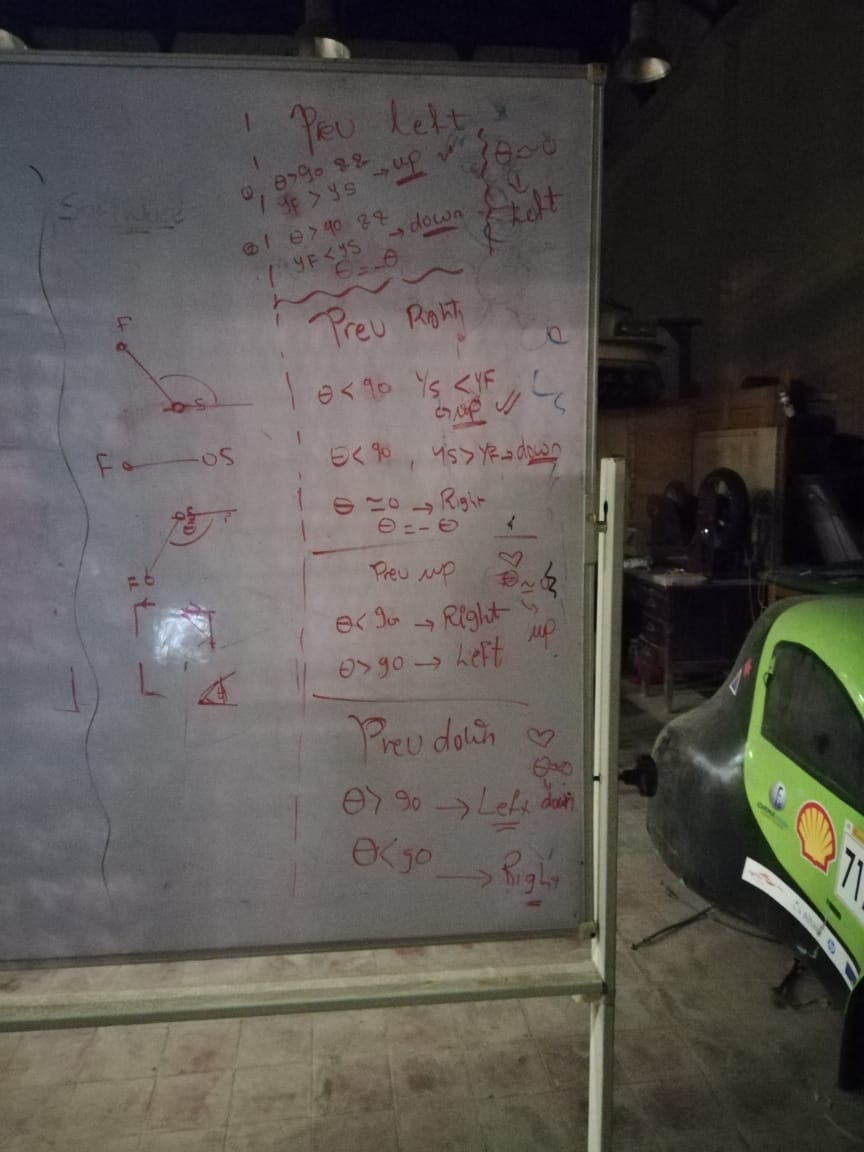 Prev Left
① θ>90 &&
yF > yS → up
② θ>90 &&
yF < yS → down
θ = -θ
θ ≃ 0
↓
Left
Software
Prev Right
θ < 90 yS < yF
↳ up
θ < 90 , yS > yF → down
θ ≃ 0 → Right
θ = - θ
F
S
F S
F
Prev up
θ < 90 → Right
θ > 90 → Left
θ ≃ 0
up
Prev down
θ ≃ 0
↓
down
θ > 90 → Left
θ < 90 → Right
71